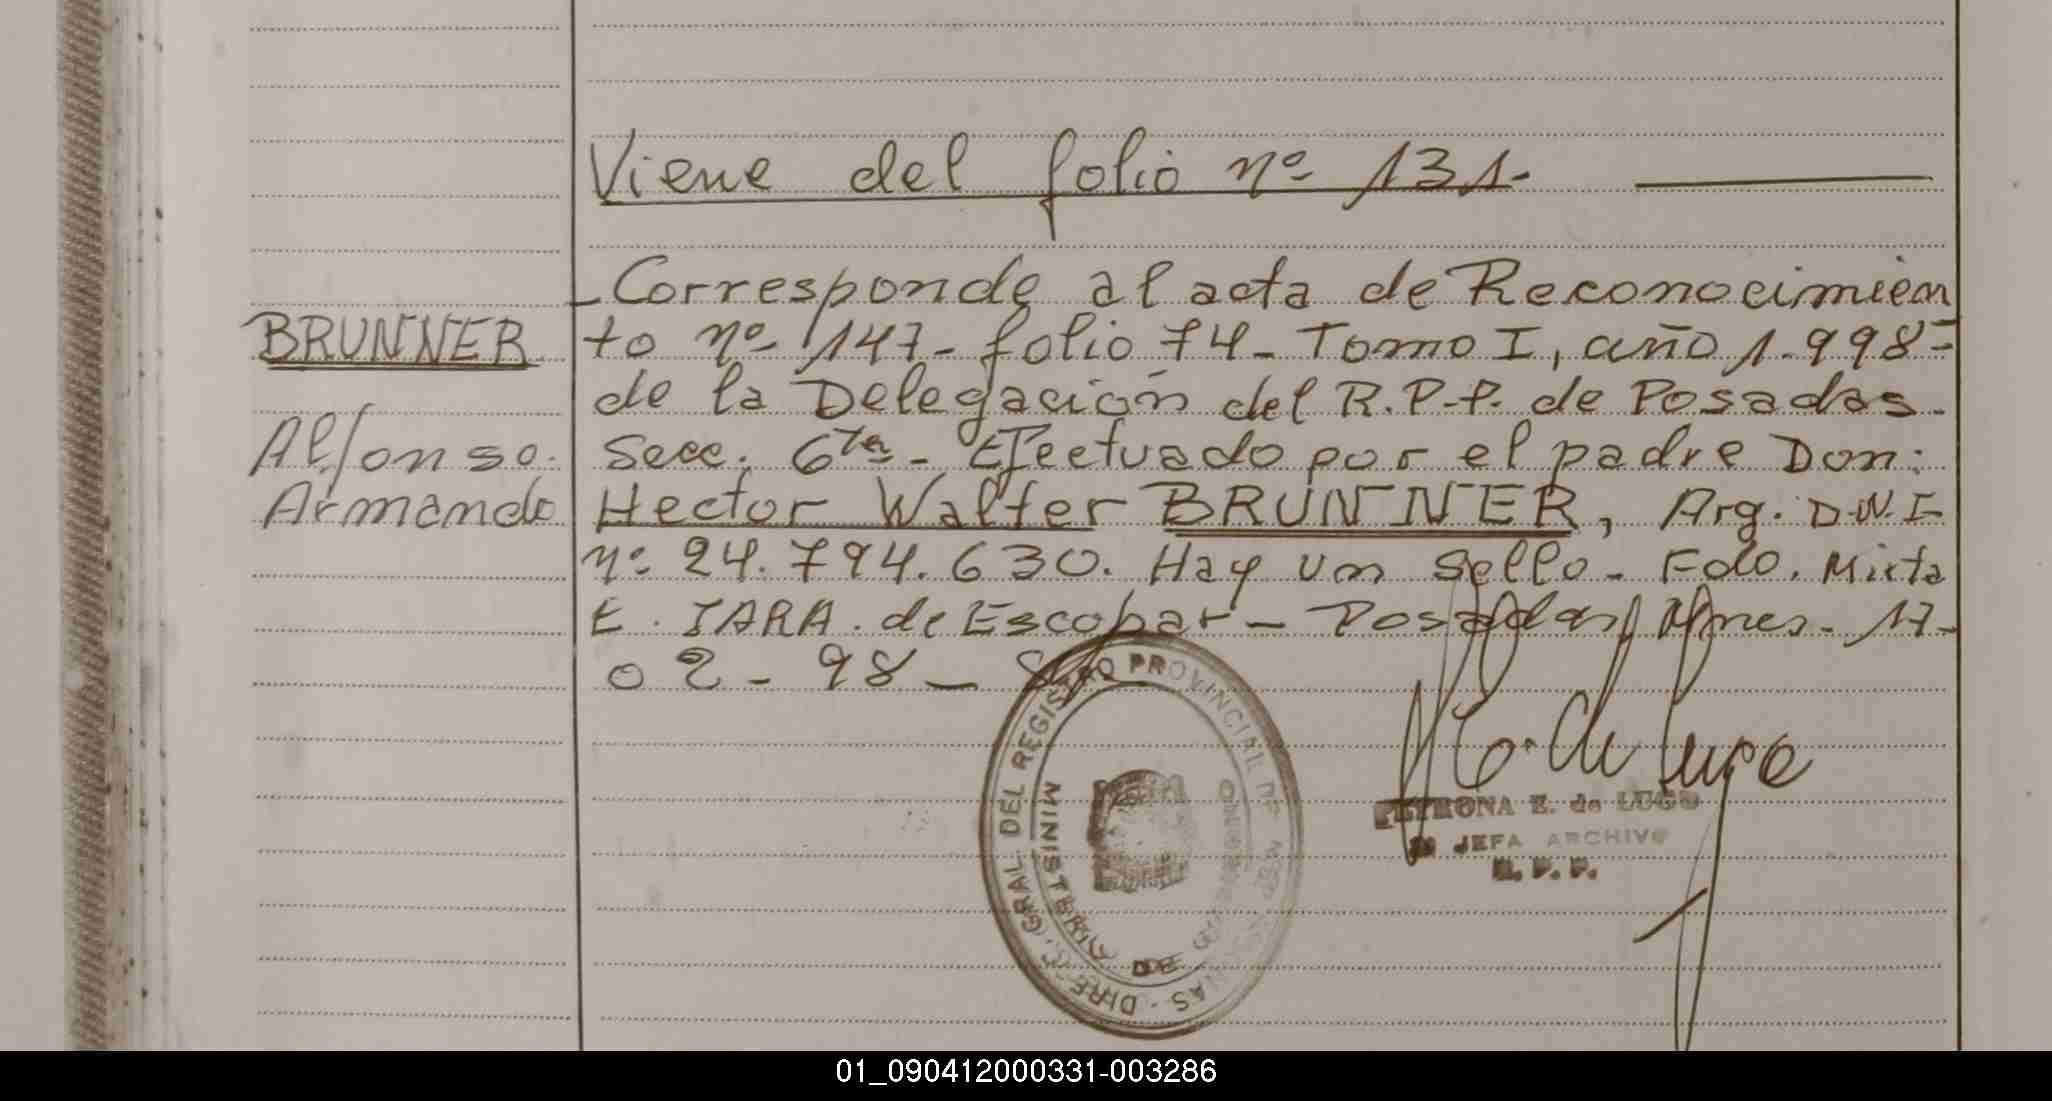 Viene del folio nº 131.
BRUNNER
Alfonso.
Armando
- Corresponde al acta de Reconocimien
to nº 147 - folio 74 - Tomo I, año 1.998-
de la Delegación del R.P.P. de Posadas.
Secc. 6ta - Efectuado por el padre Don:
Hector Walter BRUNNER, Arg. D.N.I.
nº 24.794.630. Hay un sello. Fdo. Mirta
E. JARA. de Escobar - Posadas, Mnes. 17-
02 - 98 -
DIREC. GRAL. DEL REGISTRO PROVINCIAL DE
MINISTERIO DE
PETRONA E. de LUGO
JEFA ARCHIVO
R. P. P.
01_090412000331-003286